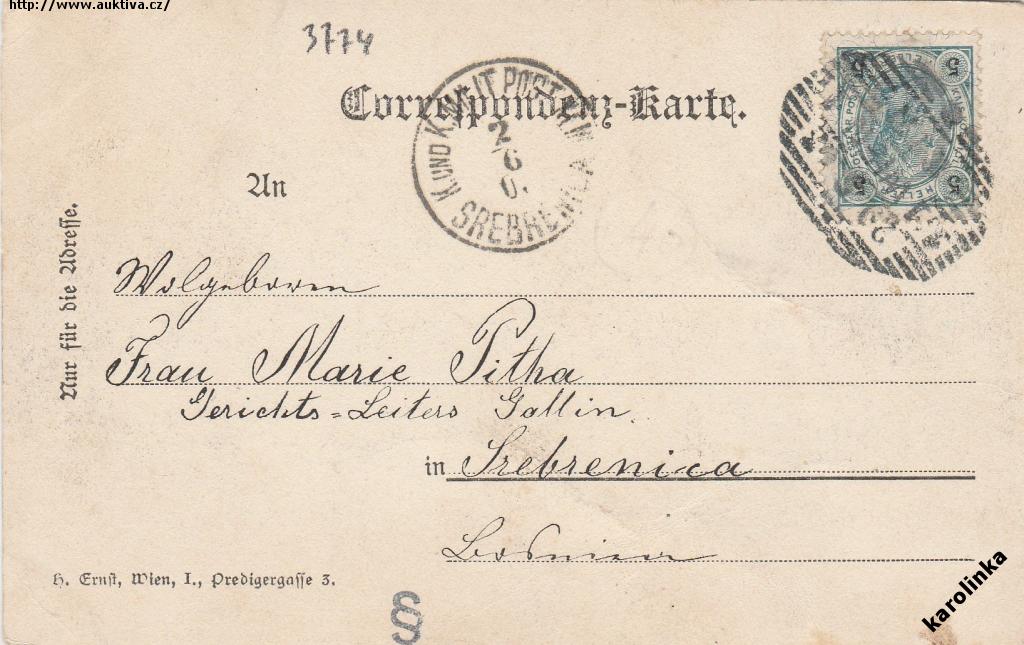 http://www.auktiva.cz/
3774
Correspondenz-Karte.
K. UND K. MILIT. POST
SREBRENICA
2
6
5
5
5
5
An
Nur für die Adresse.
Wolgeboren
Frau Marie Pitha
Gerichts=Leiters Gattin
in Srebrenica
Bosnien
H. Ernst, Wien, I., Predigergasse 3.
§
karolinka